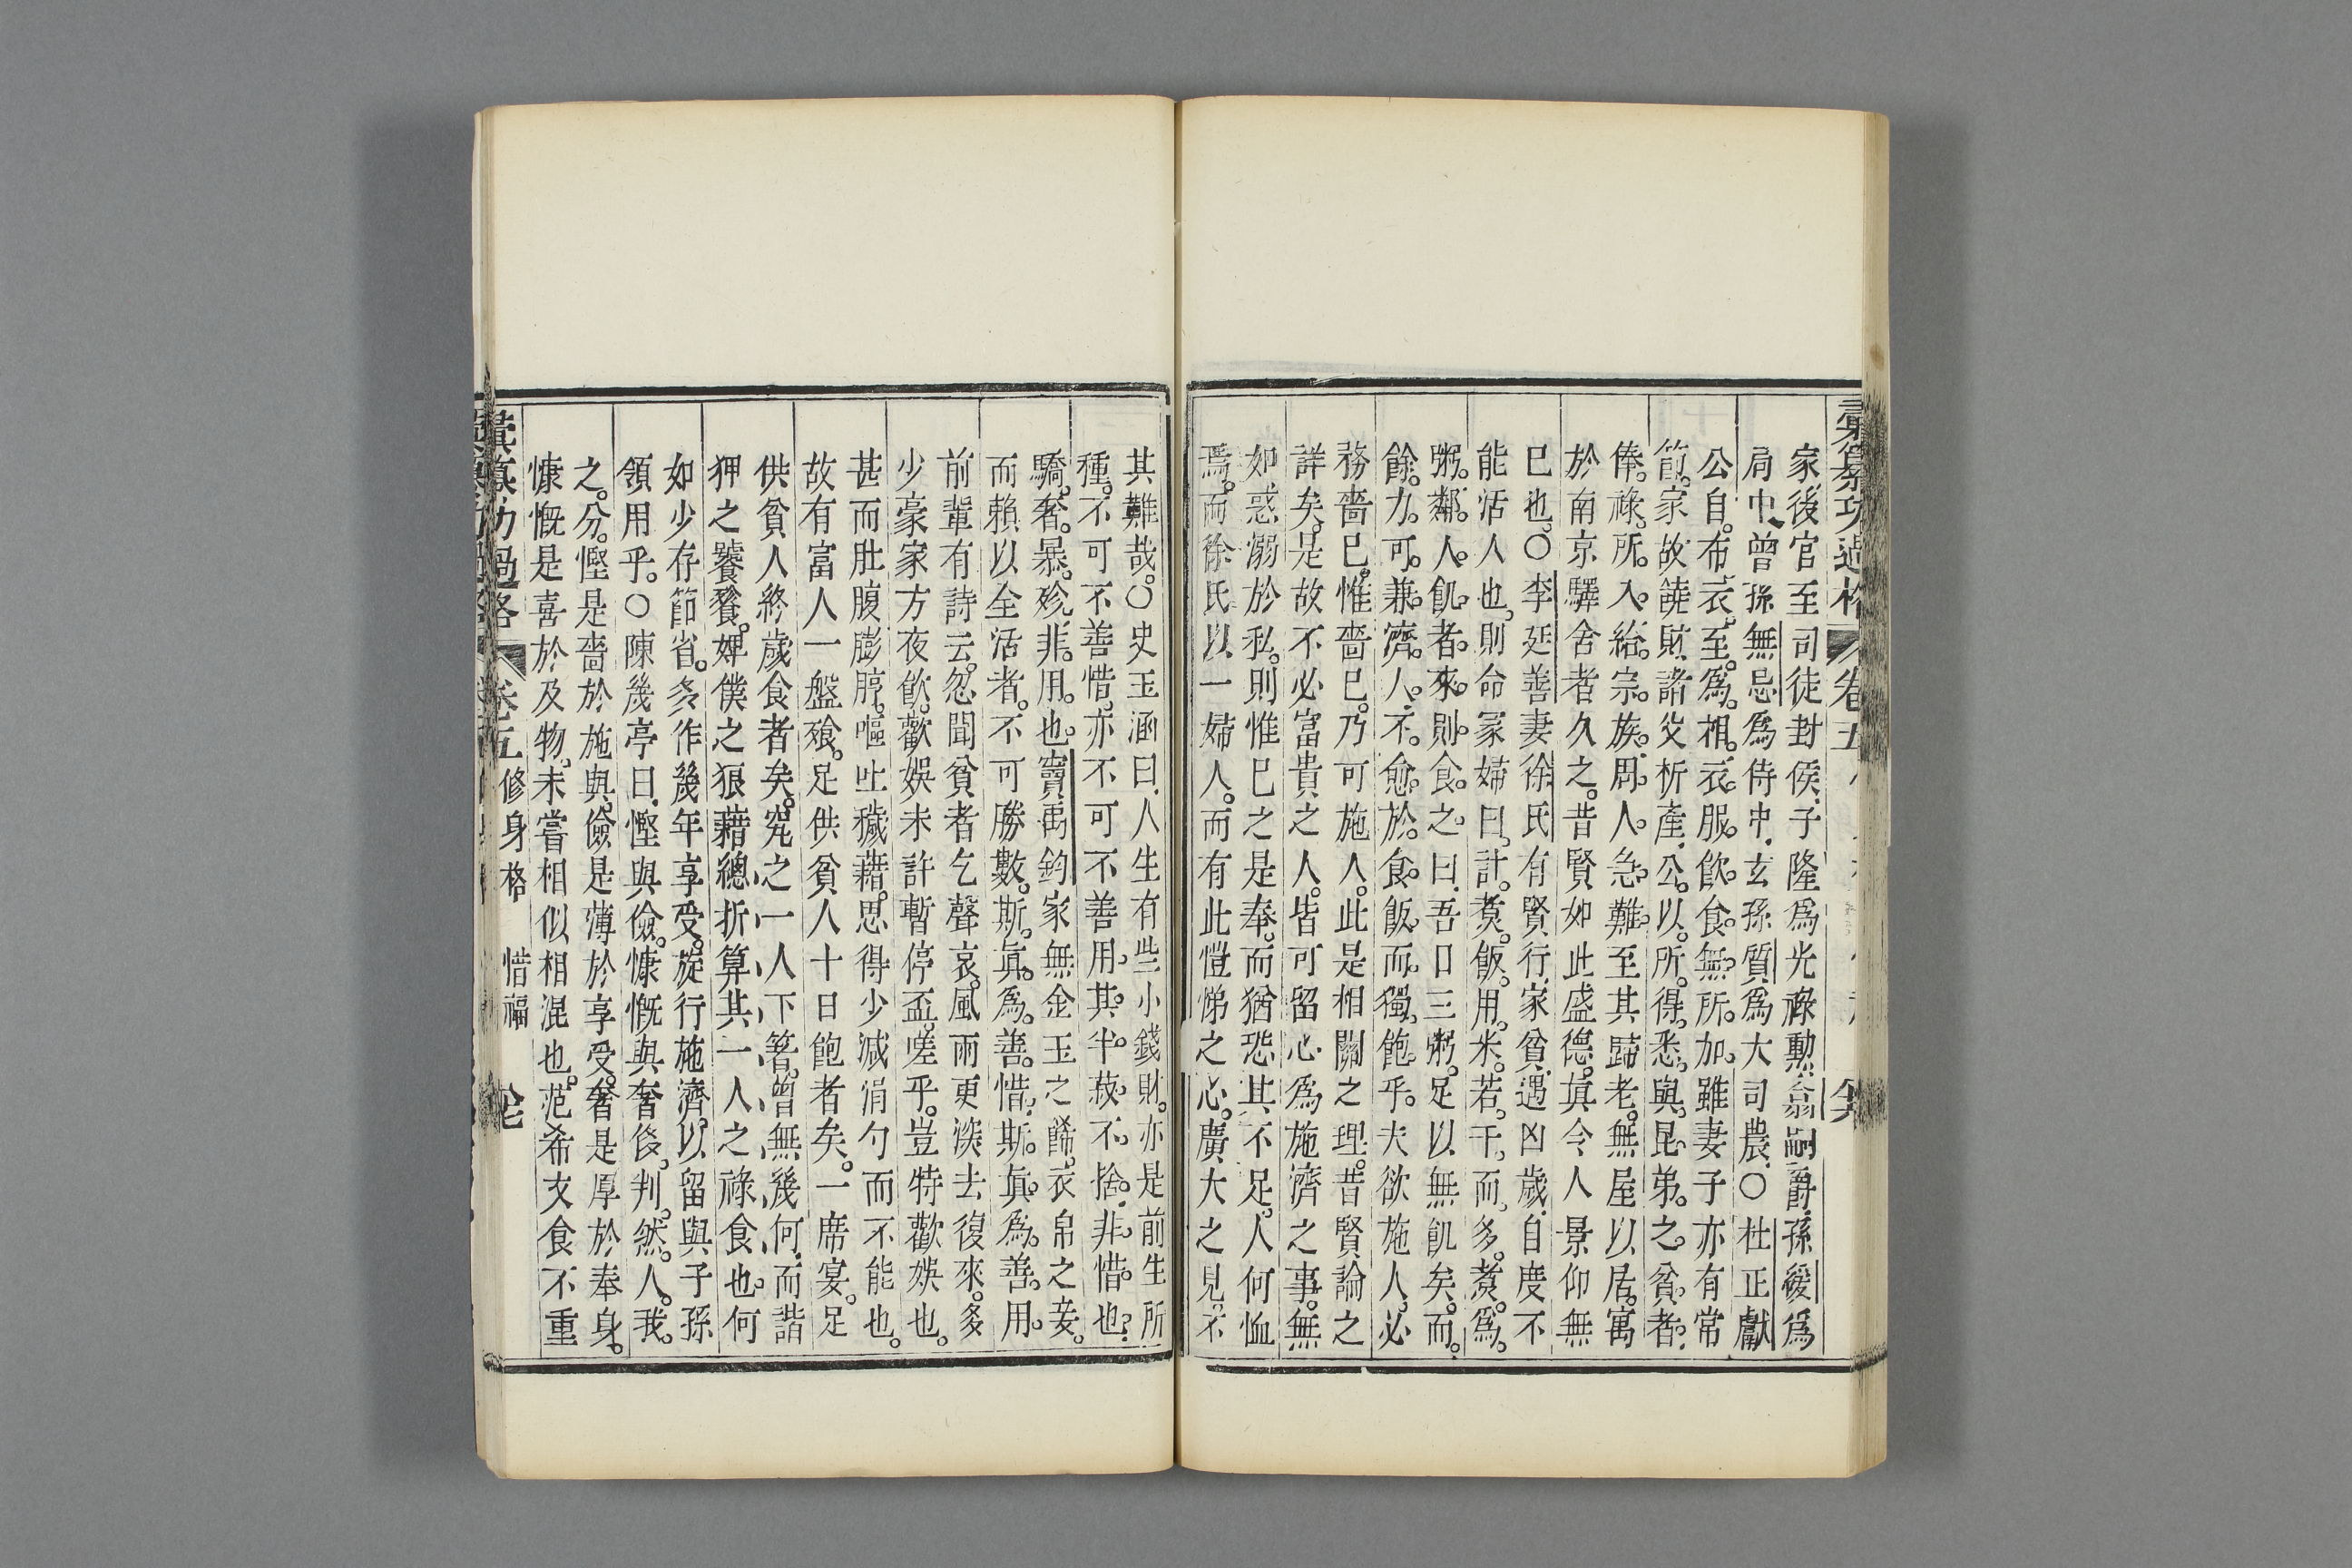 彚纂功過格 卷五 
家後官至司徒封侯子隆爲光祿勲翕嗣爵孫緩爲
肩中曾孫無忌爲侍中玄孫質爲大司農〇杜正獻
公自布衣至爲相衣服飲食無所加雖妻子亦有常
節家故饒財諸父析產公以所得悉與昆弟之貧者
俸祿所入給宗族周人急難至其歸老無屋以居寓
於南京驛舍者久之昔賢如此盛德眞令人景仰無
已也〇李延善妻徐氏有賢行家貧遇凶歲自度不
能活人也則命冢婦曰計煑飯用米若干而多煑爲
粥鄰人飢者來則食之曰吾日三粥足以無飢矣而
餘力可兼濟人不愈於食飯而獨飽乎夫欲施人必
務嗇已惟嗇已乃可施人此是相關之理昔賢論之
詳矣是故不必富貴之人皆可留心爲施濟之事無
如惑溺於私則惟已之是奉而猶恐其不足人何恤
焉而徐氏以一婦人而有此愷悌之心廣大之見不
其難哉〇史玉涵曰人生有些小錢財亦是前生所
種不可不善惜亦不可不善用其半菽不捨非惜也
驕奢暴殄非用也竇禹鈞家無金玉之飾衣帛之妾
而賴以全活者不可勝數斯眞爲善惜斯眞爲善用
前輩有詩云忽聞貧者乞聲哀風雨更深去復來多
少豪家方夜飲歡娛未許暫停盃嗟乎豈特歡娛也
甚而肚腹膨脝嘔吐穢藉思得少減涓勺而不能也
故有富人一盤飱足供貧人十日飽者矣一席宴足
供貧人終歲食者矣究之一人下箸曾無幾何而諧
狎之饕餮婢僕之狼藉總折算其一人之祿食也何
如少存節省多作幾年享受旋行施濟以留與子孫
領用乎〇陳幾亭曰慳與儉慷慨與奢侈判然人我
之分慳是嗇於施與儉是薄於享受奢是厚於奉身
慷慨是喜於及物未嘗相似相混也范希文食不重
彚纂功過格 卷五 修身格 惜福